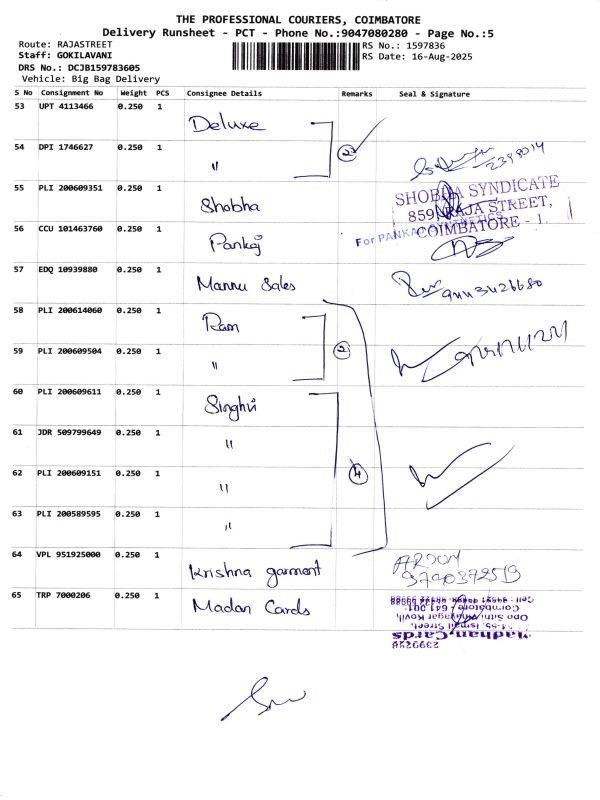 THE PROFESSIONAL COURIERS, COIMBATORE
Delivery Runsheet - PCT - Phone No.:9047080280 - Page No.:5
Route: RAJASTREET RS No.: 1597836
Staff: GOKILAVANI RS Date: 16-Aug-2025
DRS No.: DCJB159783605
Vehicle: Big Bag Delivery
S No Consignment No Weight PCS Consignee Details Remarks Seal & Signature
53 UPT 4113466 0.250 1 Deluxe
54 DPI 1746627 0.250 1 " 2
55 PLI 200609351 0.250 1 Shobha SHOBHA SYNDICATE
859, RAJA STREET,
COIMBATORE - 1.
56 CCU 101463760 0.250 1 Pankaj For PANKAJ SYNTHETICS
57 EDQ 10939880 0.250 1 Mannu Sales
58 PLI 200614060 0.250 1 Ram
59 PLI 200609504 0.250 1 " 2
60 PLI 200609611 0.250 1 Singhvi
61 JDR 509799649 0.250 1 "
62 PLI 200609151 0.250 1 " 4
63 PLI 200589595 0.250 1 "
64 VPL 951925000 0.250 1 Krishna garment
9790372519
65 TRP 7000206 0.250 1 Madan Cards
Madhan Cards
Coimbatore - 641 001.